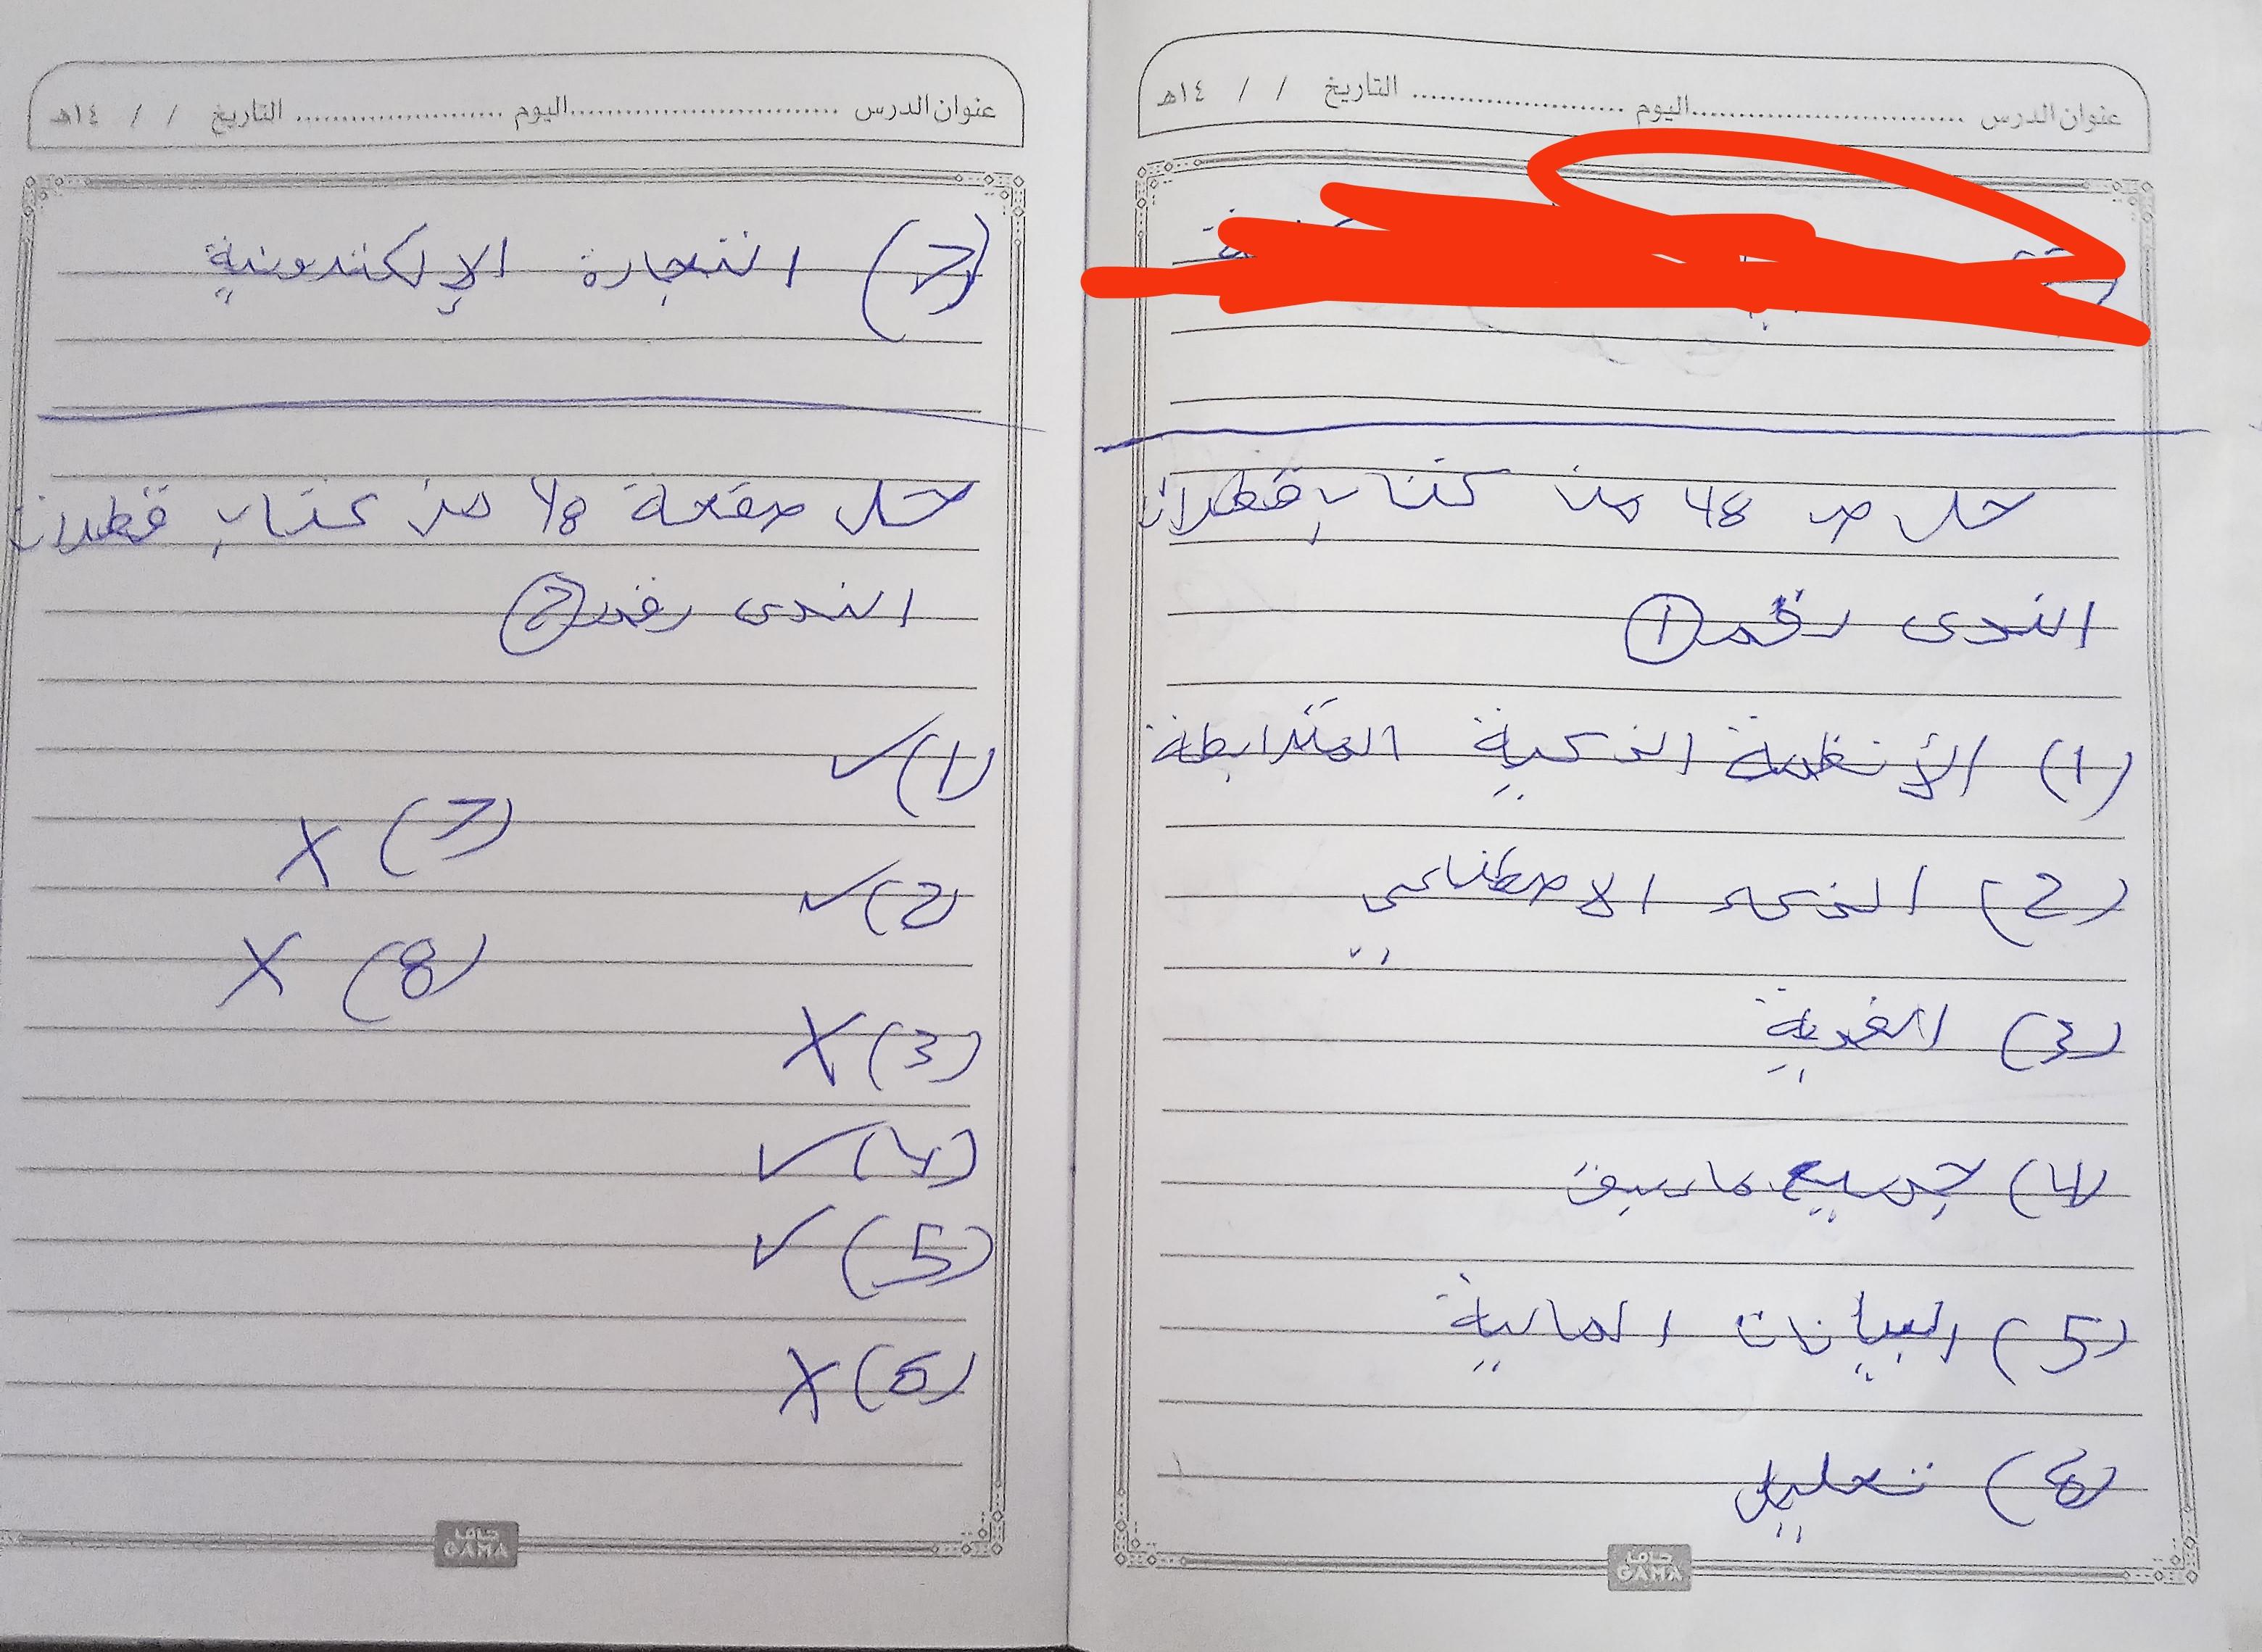 عنوان الدرس ........................ اليوم ........................ التاريخ / / ١٤هـ
حل ص 48 من كتاب قطرات
الندى رقم ①
(1) الأنظمة الذكية المترابطة
(2) الذكاء الاصطناعي
(3) الغربية
(4) جميع ماسبق
(5) البيانات المالية
(6) تحليل
جاما
GAMA
عنوان الدرس ........................ اليوم ........................ التاريخ / / ١٤هـ
(7) التجارة الإلكترونية
حل صفحة 48 من كتاب قطرات
الندى رقم ②
(1) ✓
(7) X
(2) ✓
(8) X
(3) X
(4) ✓
(5) ✓
(6) X
جاما
GAMA